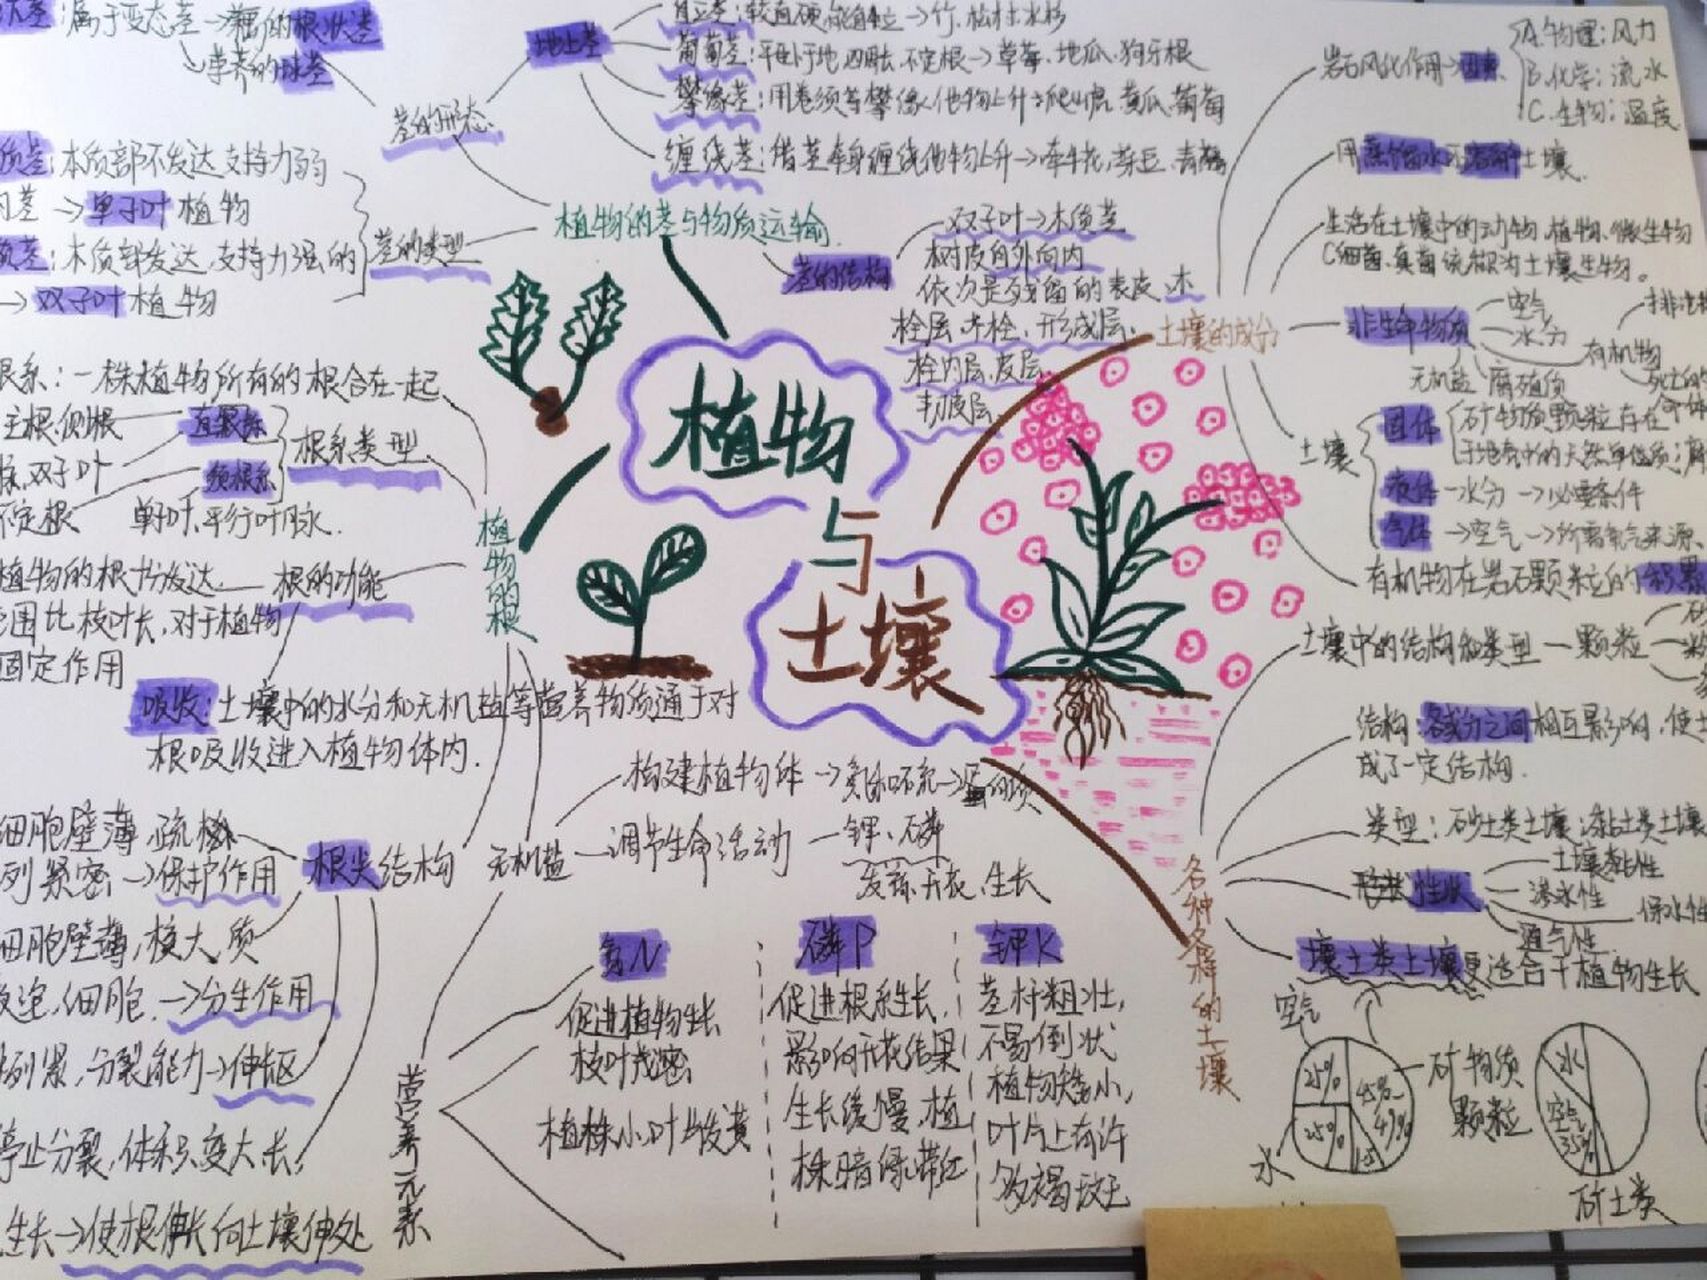 属于变态茎→藕的根状茎
→荸荠的球茎
茎的形态
地上茎
直立茎:较直硬能直立→竹、松树、水杉
葡萄茎:平卧于地四肢、不定根→草莓、地瓜、狗牙根
攀缘茎:用卷须等攀缘他物上升→爬山虎、黄瓜、葡萄
缠绕茎:借茎本身缠绕他物上升→牵牛花、芸豆
质茎:本质部不发达支持力弱
→单子叶植物
质茎:木质部发达,支持力强的
→双子叶植物
茎的类型
植物的茎与物质运输
茎的结构
双子叶→木质茎
树皮自外向内
依次是残留的表皮、木
栓层、木栓、形成层、
栓内层、皮层、
韧皮层
植物
与
土壤
根系:一株植物所有的根合在一起
主根、侧根
直根系
双子叶
须根系
根系类型
不定根
单子叶、平行叶脉.
植物的根
植物的根十分发达
根的功能
围比枝叶长,对于植物
固定作用
吸收:土壤中的水分和无机盐等营养物质通于对
根吸收进入植物体内.
细胞壁薄、疏松
列紧密→保护作用
根尖结构
细胞壁薄,核大、质
液泡,细胞.→分生作用
分裂能力→伸长区
停止分裂,体积变大长
生长→使根伸长向土壤伸处
无机盐
构建植物体→氮和硫→蛋白质
调节生命活动
钾、磷
发芽、开花、生长
营养元素
氮N
促进植物生长
枝叶茂密
植株小叶片发黄
磷P
促进根系生长,
影响开花结果
生长缓慢,植
株暗绿带红
钾K
茎杆粗壮,
不易倒状
植物矮小,
叶片上有许
多褐斑
土壤的成分
岩石风化作用→因素
A.物理:风力
B.化学:流水
C.生物:温度
用蒸馏水可溶解土壤.
生活在土壤中的动物、植物、微生物
(细菌、真菌统称为土壤生物。
非生命物质
空气
水分
有机物
无机盐
腐殖质
土壤
固体
矿物质颗粒存在
液体—水分→必要条件
气体→空气→所需氧气来源
有机物在岩石颗粒的积累
各种各样的土壤
土壤中的结构和类型—颗粒
结构:各成分之间相互影响,使土
成了一定结构.
类型:砂土类土壤:黏土类土壤
性状
土壤黏性
渗水性
保水性
通气性
壤土类土壤更适合于植物生长
空气
25%
45%-
47%
25%
水
矿物质
颗粒
水
空气
35%
砂土类